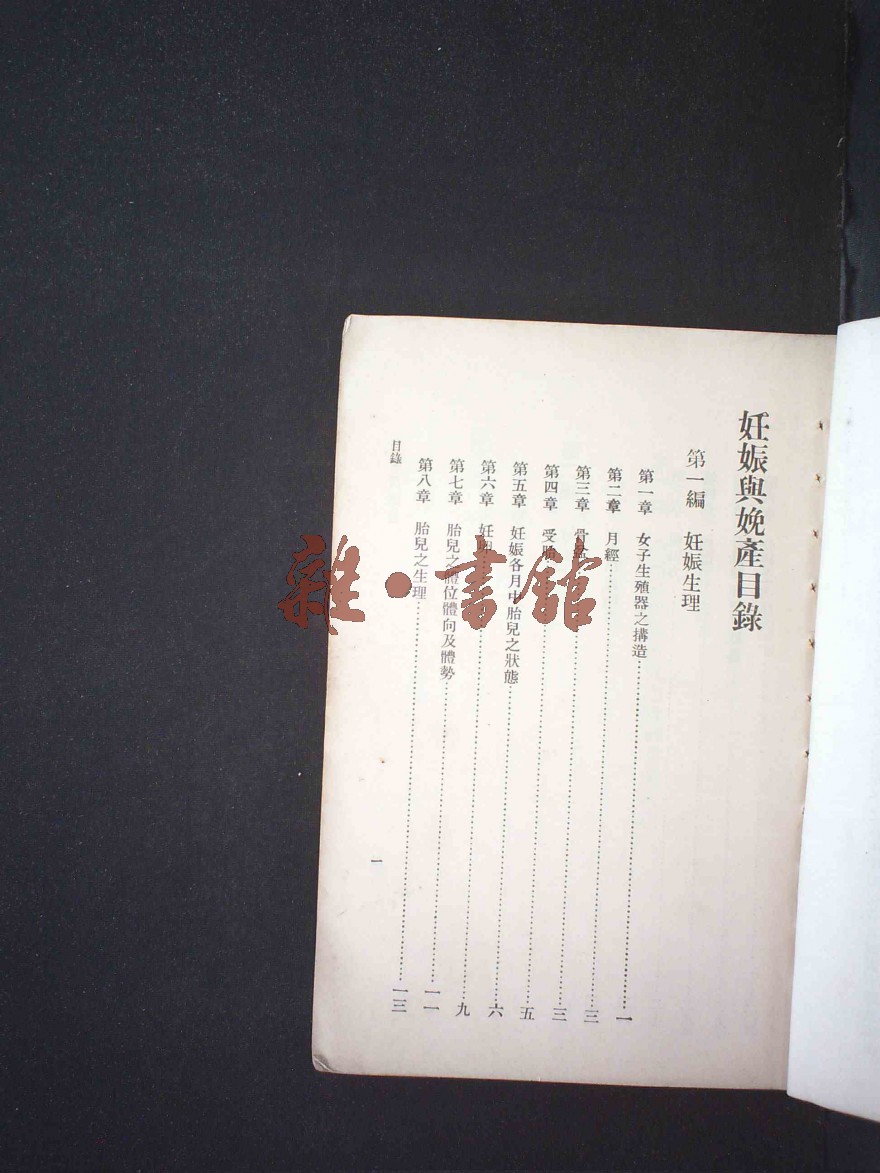 妊娠與娩產目錄
第一編 妊娠生理
第一章 女子生殖器之搆造……一
第二章 月經……三
第三章 骨盤……三
第四章 受胎……五
第五章 妊娠各月中胎兒之狀態……六
第六章 妊……九
第七章 胎兒之體位體向及體勢……一一
第八章 胎兒之生理……一三
目錄
一
雜·書館